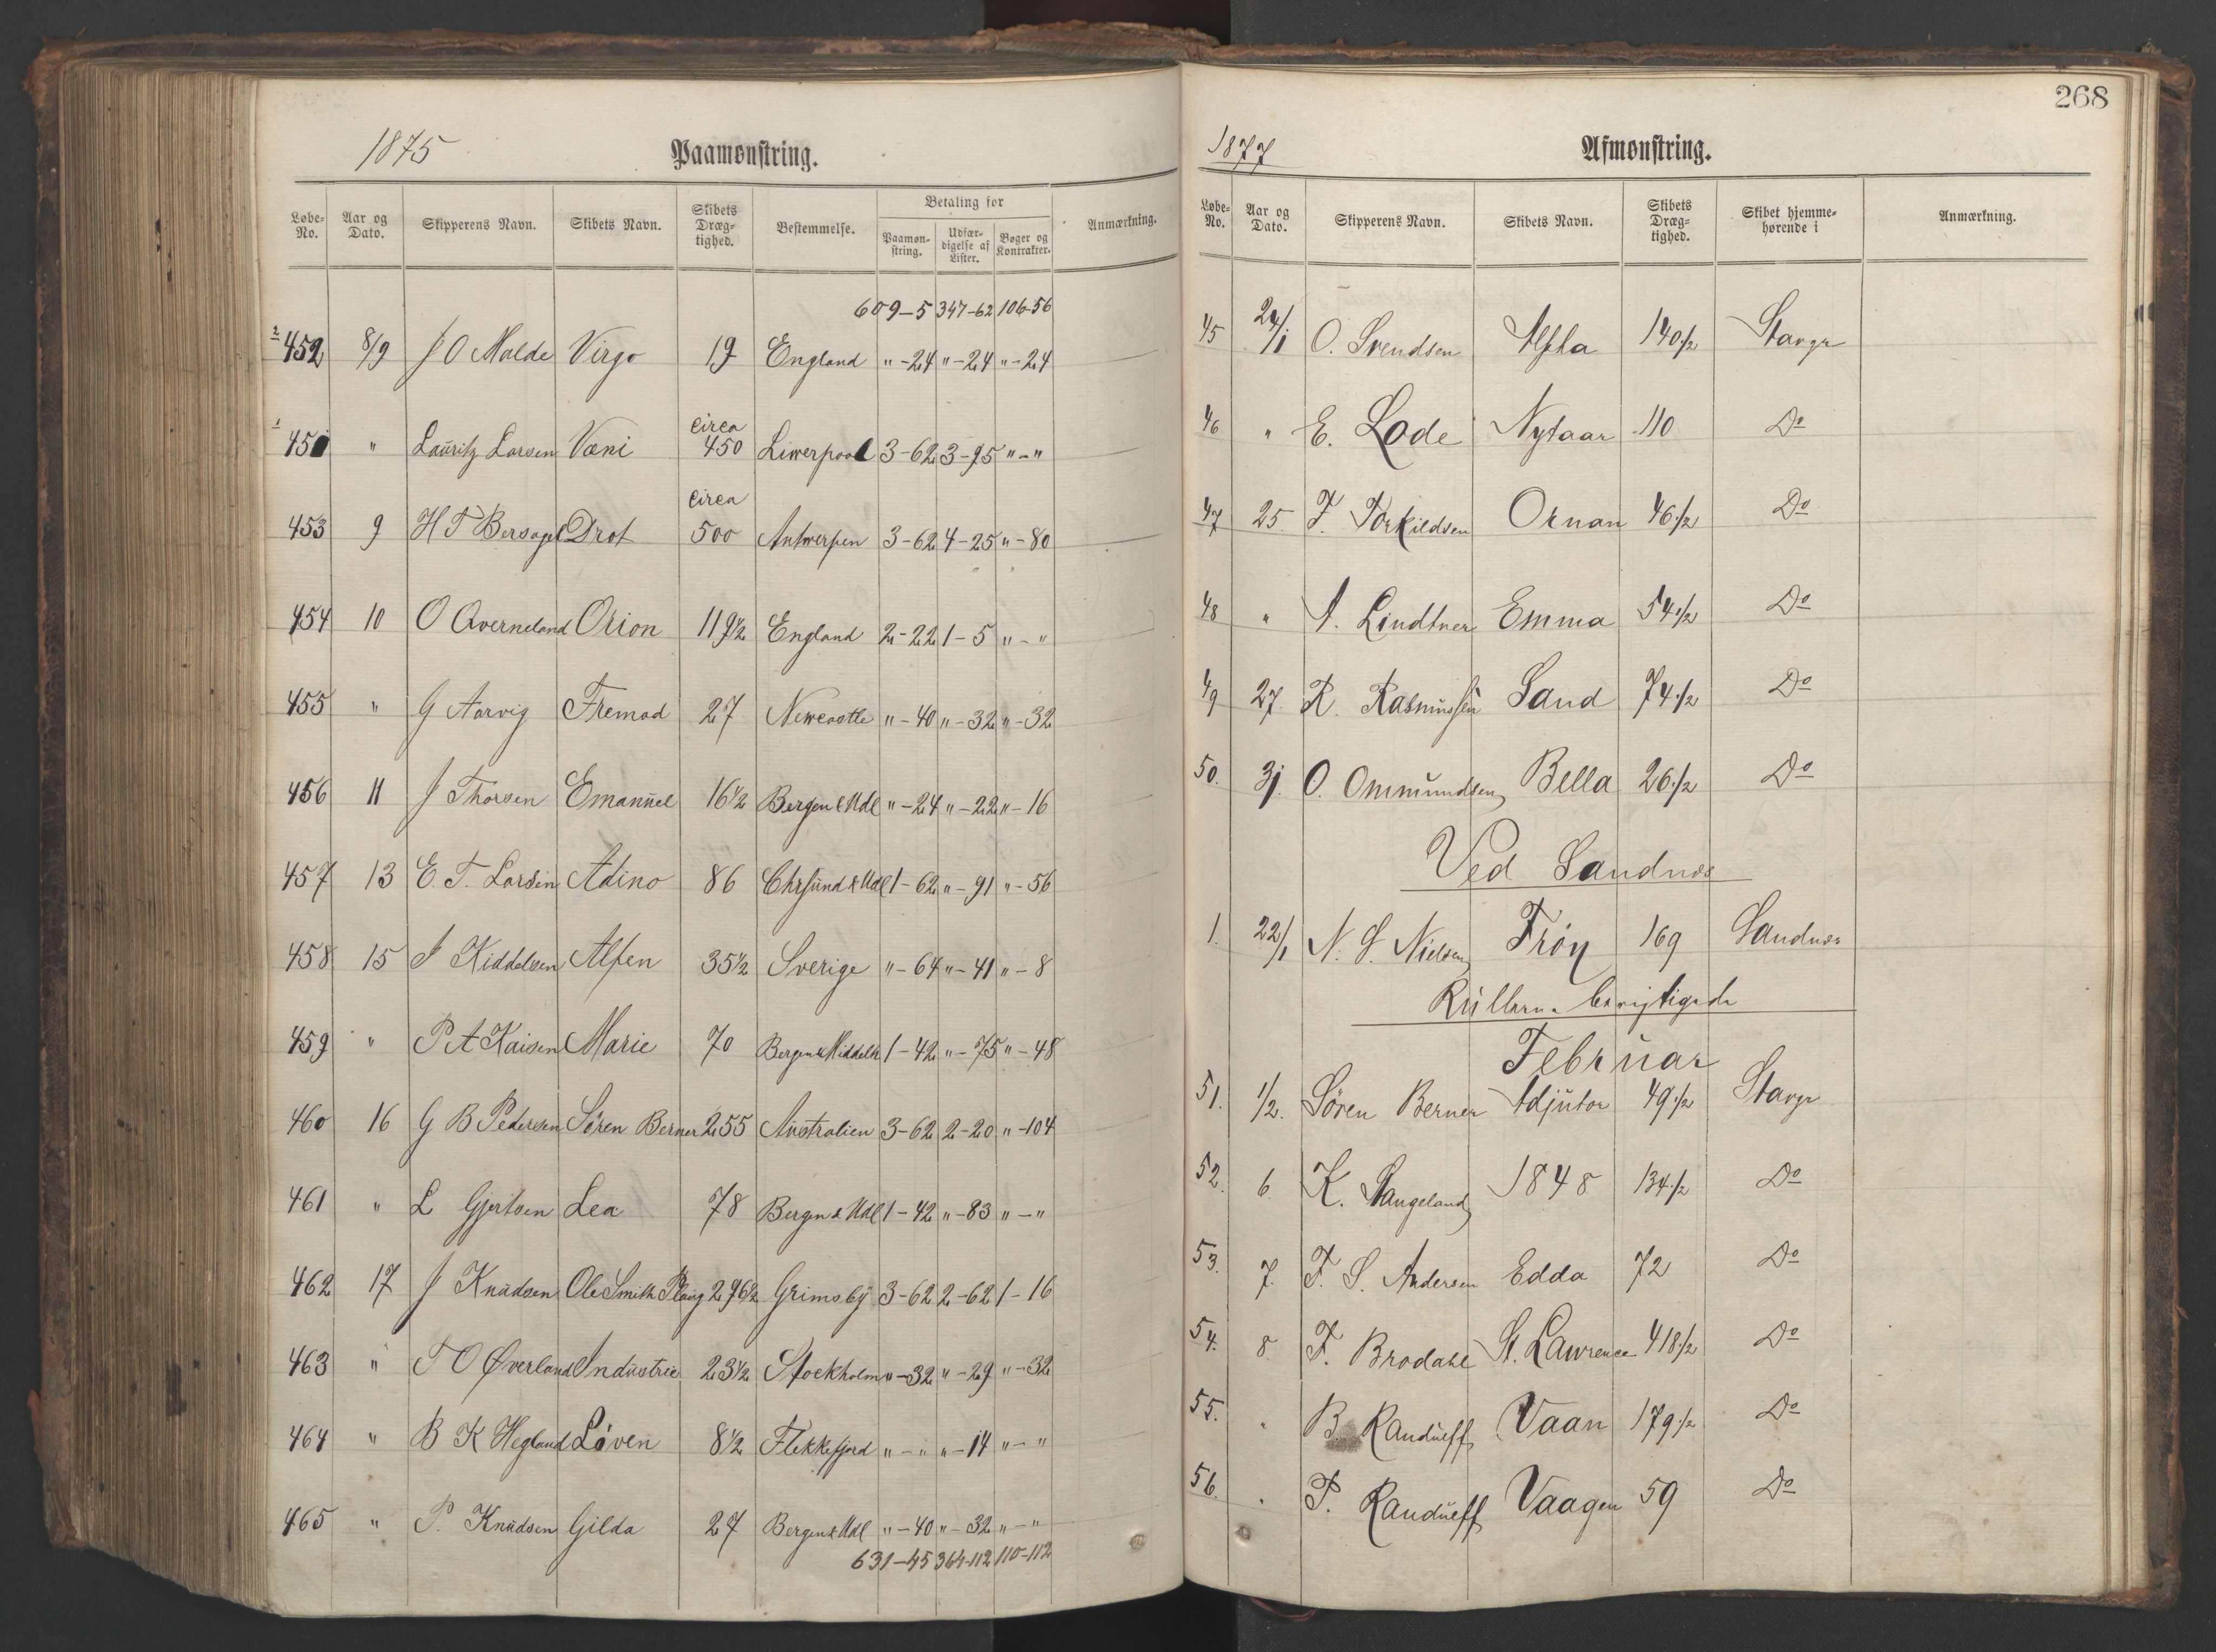 1875 Paamønstring.
Løbe-No. Aar og Dato. Skipperens Navn. Skibets Navn. Skibets Dræg-tighed. Bestemmelse. Betaling for Paamøn-string. Udfær-digelse af Lister. Bøger og Kontrakter. Anmærkning.
609-5 347-62 106-56
2 452 8/9 J O Malde Virgo 19 England "-24 "-24 "-24
1 451 " Lauritz Larsen Væni circa 450 Liverpool 3-62 3-95 "-"
453 9 H T Bersagel Drot circa 500 Antwerpen 3-62 4-25 "-80
454 10 O Qverneland Orion 119½ England 2-22 1-5 "-"
455 " G Aarvig Fremad 27 Newcastle "-40 "-32 "-32
456 11 J Thorsen Emanuel 16½ Bergen & Udl "-24 "-22 "-16
457 13 E. T. Larsen Adino 86 Chrsund & Udl 1-62 "-91 "-56
458 15 J Kiddelsen Alfen 35½ Sverige "-64 "-41 "-8
459 " P A Kaisen Marie 70 Bergen & Middelh 1-42 "-75 "-48
460 16 G B Pedersen Søren Berner 255 Australien 3-62 2-20 "-104
461 " L Gjertsen Lea 78 Bergen & Udl 1-42 "-83 "-"
462 17 J Knudsen Ole Smith Ploug 296½ Grimsby 3-62 2-62 1-16
463 " T O Øverland Industrie 23½ Stockholm "-32 "-29 "-32
464 " B K Hegland Løven 8½ Flekkefjord "-" "-14 "-"
465 " P. Knudsen Gilda 27 Bergen & Udl "-40 "-32 "-"
631-45 364-112 110-112
268
1877 Afmønstring.
Løbe-No. Aar og Dato. Skipperens Navn. Skibets Navn. Skibets Dræg-tighed. Skibet hjemme-hørende i Anmærkning.
45 24/1 O. Svendsen Alpha 140½ Stavgr
46 " E. Lode Nytaar 110 Do
47 25 F. Torkildsen Ornan 46½ Do
48 " A. Lindtner Emma 54½ Do
49 27 R. Rasmussen Sand 74½ Do
50. 31. O. Ommundsen Bella 26½ Do
Ved Sandnæs
1. 22/1 N. S. Nielsen Frøy 169 Sandnæs
Rullerne berigtigede
Februar
51. 1/2. Søren Berner Adjutor 49½ Stavgr
52. 6. K. Stangeland 1848 134½ Do
53. 7. F. S. Andersen Edda 72 Do
54. 8. F. Brodahl St. Lawrence 418½ Do
55. " B. Randueff Vaan 179½ Do
56. " P. Randueff Vaagen 59 Do